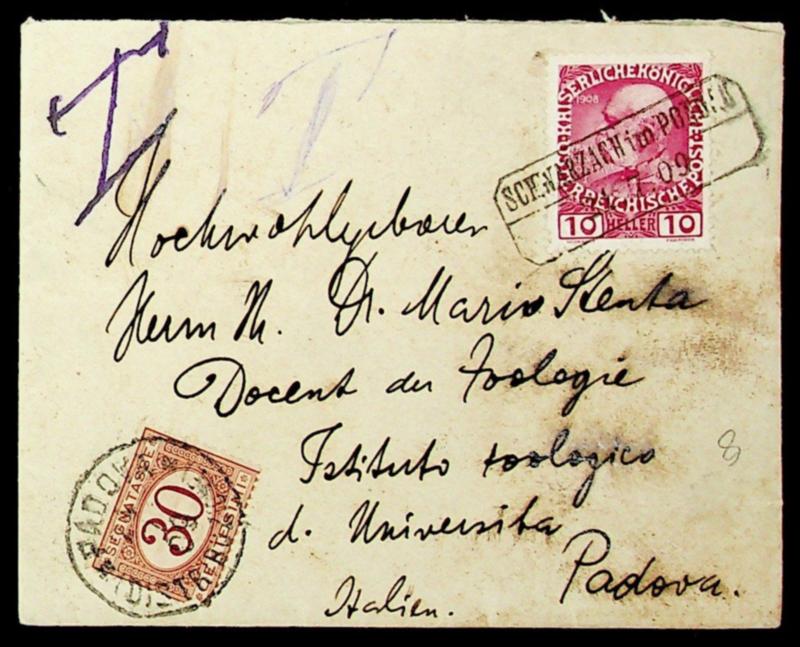 T T
1908
KAISERLICHE KÖNIGLICHE
ÖSTERREICHISCHE POST
10 HELLER 10
SCHWARZACH im PONGAU
7. 09
Hochwohlgeboren
Herrn Dr. Mario Stenta
Docent der Zoologie
Istituto zoologico
d. Universita
Padova.
Italien.
8
SEGNATASSE
30
CENTESIMI
PADOVA